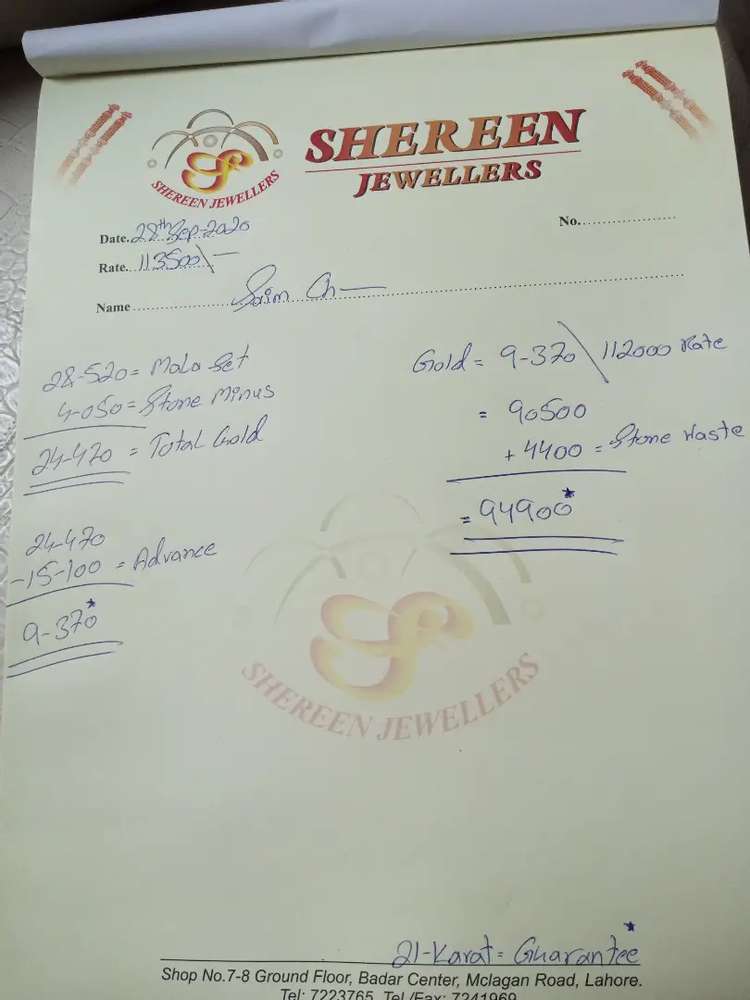 SHEREEN JEWELLERS
SHEREEN
JEWELLERS
Date. 28th Sep-2020
No.
Rate. 113500\-
Name Saim Ch
28-520 = Mala Set
4-050 = Stone Minus
24-470 = Total Gold
24-470
-15-100 = Advance
9-370*
Gold = 9-370 \ 112000 Rate
= 90500
+ 4400 = Stone Waste
= 94900*
SHEREEN JEWELLERS
21-Karat = Guarantee*
Shop No.7-8 Ground Floor, Badar Center, Mclagan Road, Lahore.
Tel: 7223765, Tel/Fax: 7241969